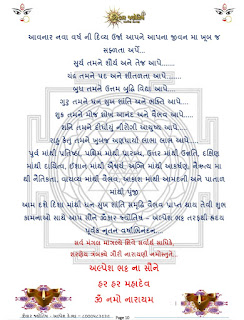 આવનાર નવા વર્ષ ની દિવ્ય ઉર્જા આપને આપના જીવન મા ખુબ જ
સફળતા અર્પે...
સૂર્ય તમને શૌર્ય અને તેજ આપે......
ચંદ્ર તમને પદ અને શીતળતા આપે ......
બુધ તમને ઉત્તમ બુદ્ધિ વિદ્યા આપે...
ગુરૂ તમને ધન સુખ શાંતિ અને ભક્તિ આપે....
શુક્ર તમને મોજ શોખ આનંદ અને વૈભવ આપે.....
શનિ તમને દીર્ઘાયુ નીરોગી આયુષ્ય આપે....
રાહુ કેતુ તમને ખુબજ અણધાર્યો લાભ લાભ આપે...
પૂર્વ માંથી પ્રતિષ્ઠા, પશ્ચિમ માંથી પ્રારબ્ધ, ઉત્તર માંથી ઉન્નતિ, દક્ષિણ
માંથી દાયિત્વ, ઈશાન માંથી ઐશ્વર્ય, અગ્નિ માંથી આકર્ષણ, નૈઋત્ય મા
થી નૈતિકતા, વાયવ્ય માંથી વૈભવ, આકાશ માંથી આમદની અને પાતાળ
માંથી પુંજી
આમ દશે દિશા માંથી ધન સુખ શાંતિ સમૃદ્ધિ વૈભવ પ્રાપ્ત થાય તેવી શુભ
કામનાઓ સાથે આપ સૌને ૐકાર જ્યોતિષ - અલ્પેશ ભટ્ટ તરફથી હ્રદય
પૂર્વક નૂતન વર્ષાભિનંદન...
સર્વ મંગલ માંગલ્યે શિવે સર્વાર્થ સાધિકે,
શરણ્યે ત્રંબકે ગૌરી નારાયણી નમોસ્તુતે..
અલ્પેશ ભટ્ટ ના સૌને
હર હર મહાદેવ
ૐ નમો નારાયણ
Page 10